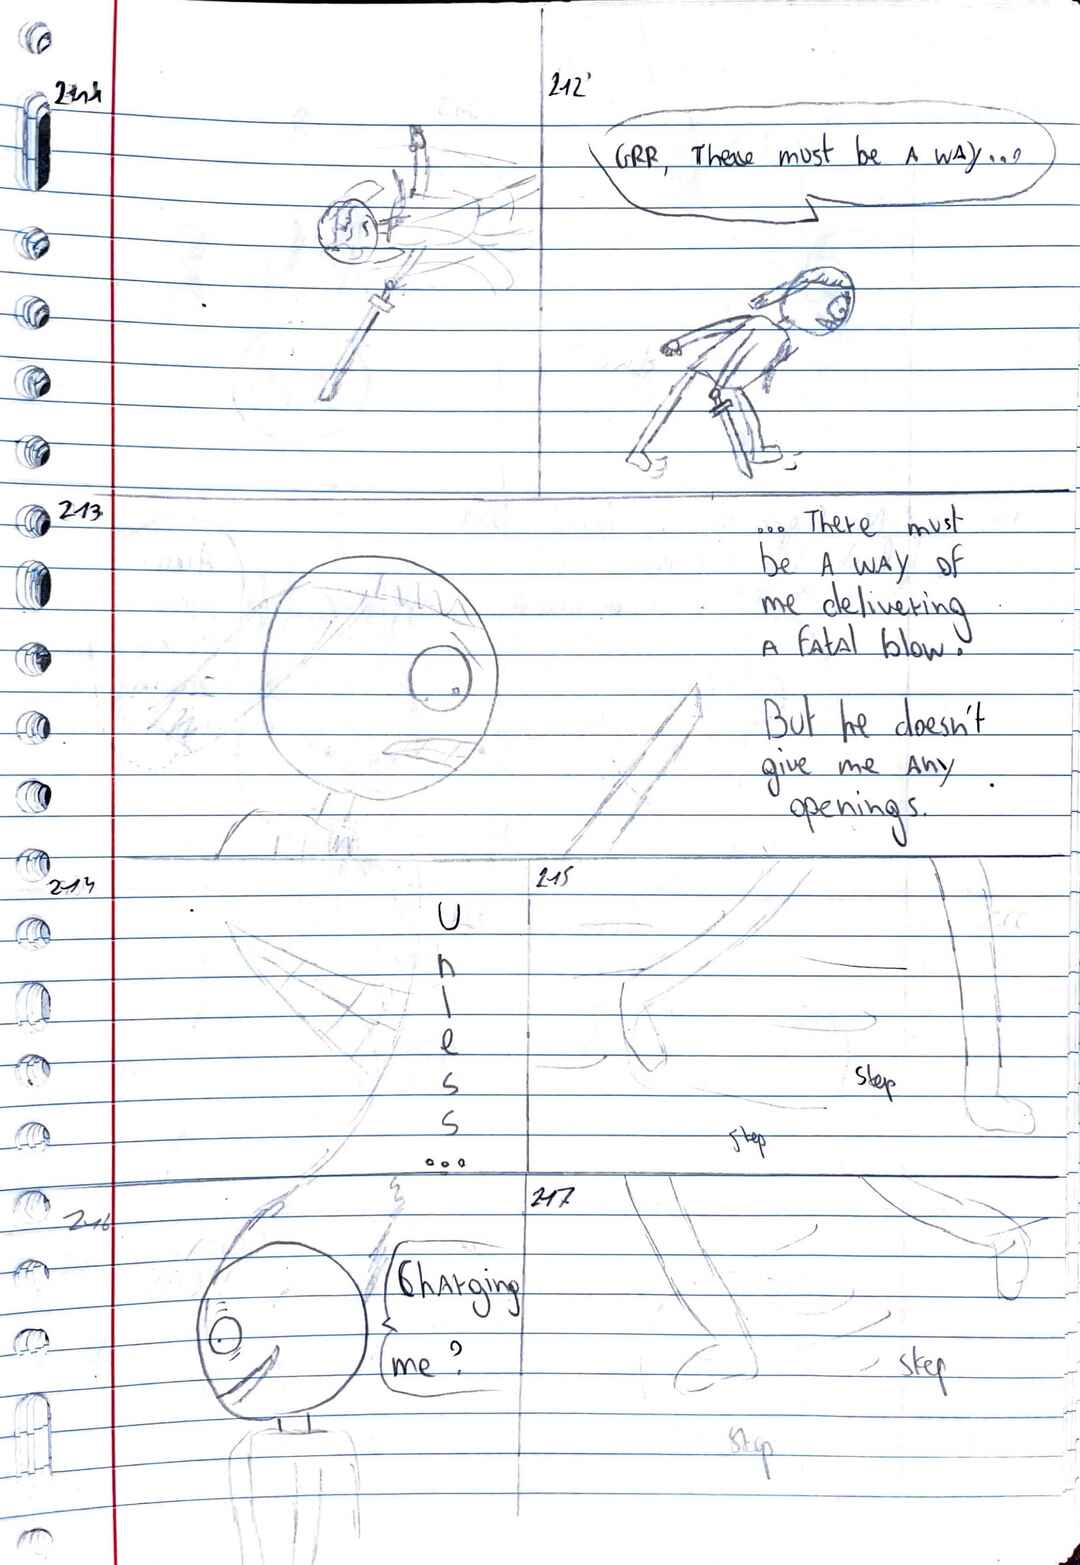 211
212
GRR, There must be A WAY...?
213
... There must
be A WAY of
me delivering
A FATAL blow.
But he doesn't
give me Any
openings.
214
U
n
l
e
s
s
...
215
Step
Step
216
Charging
me?
217
Step
Step